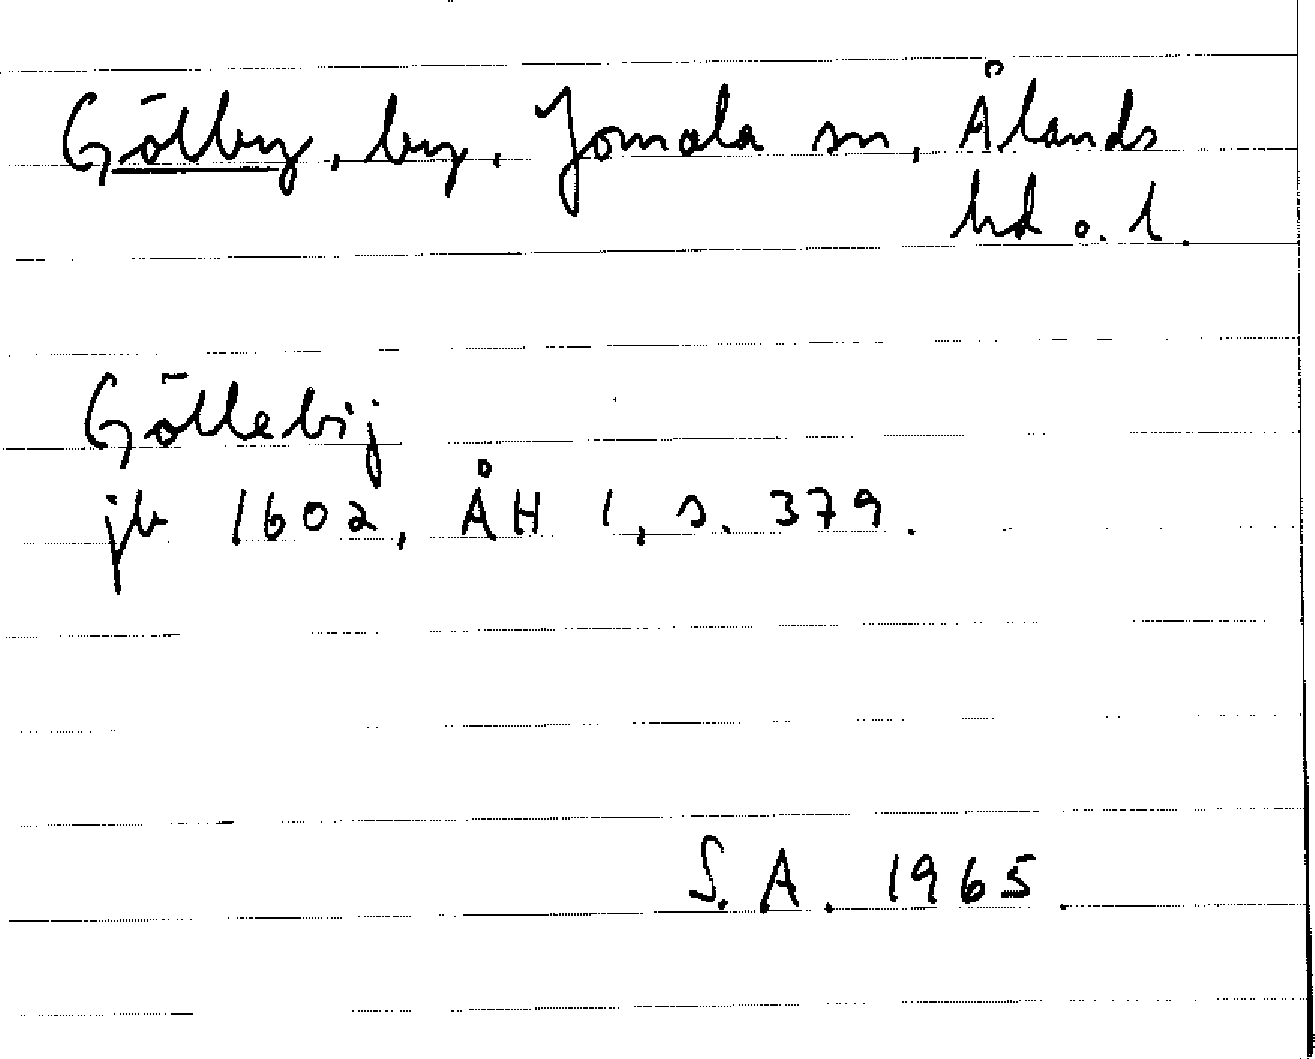 Gölby, by. Jomala sn, Ålands
hd o. l.
Göllebij
jb 1602, ÅH 1, s. 379.
S. A. 1965.